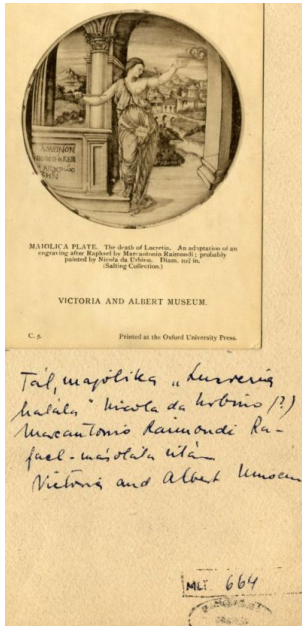 MAIOLICA PLATE. The death of Lucretia. An adaptation of an
engraving after Raphael by Marcantonio Raimondi; probably
painted by Nicola da Urbino. Diam. 10¼ in.
(Salting Collection.)
VICTORIA AND ALBERT MUSEUM.
C. 5. Printed at the Oxford University Press.
Tál, majolika „Lucrecia
halála" Nicola da Urbino (?)
Marcantonio Raimondi Ra-
fael-másolata után
Victoria and Albert Museum
MLT 664